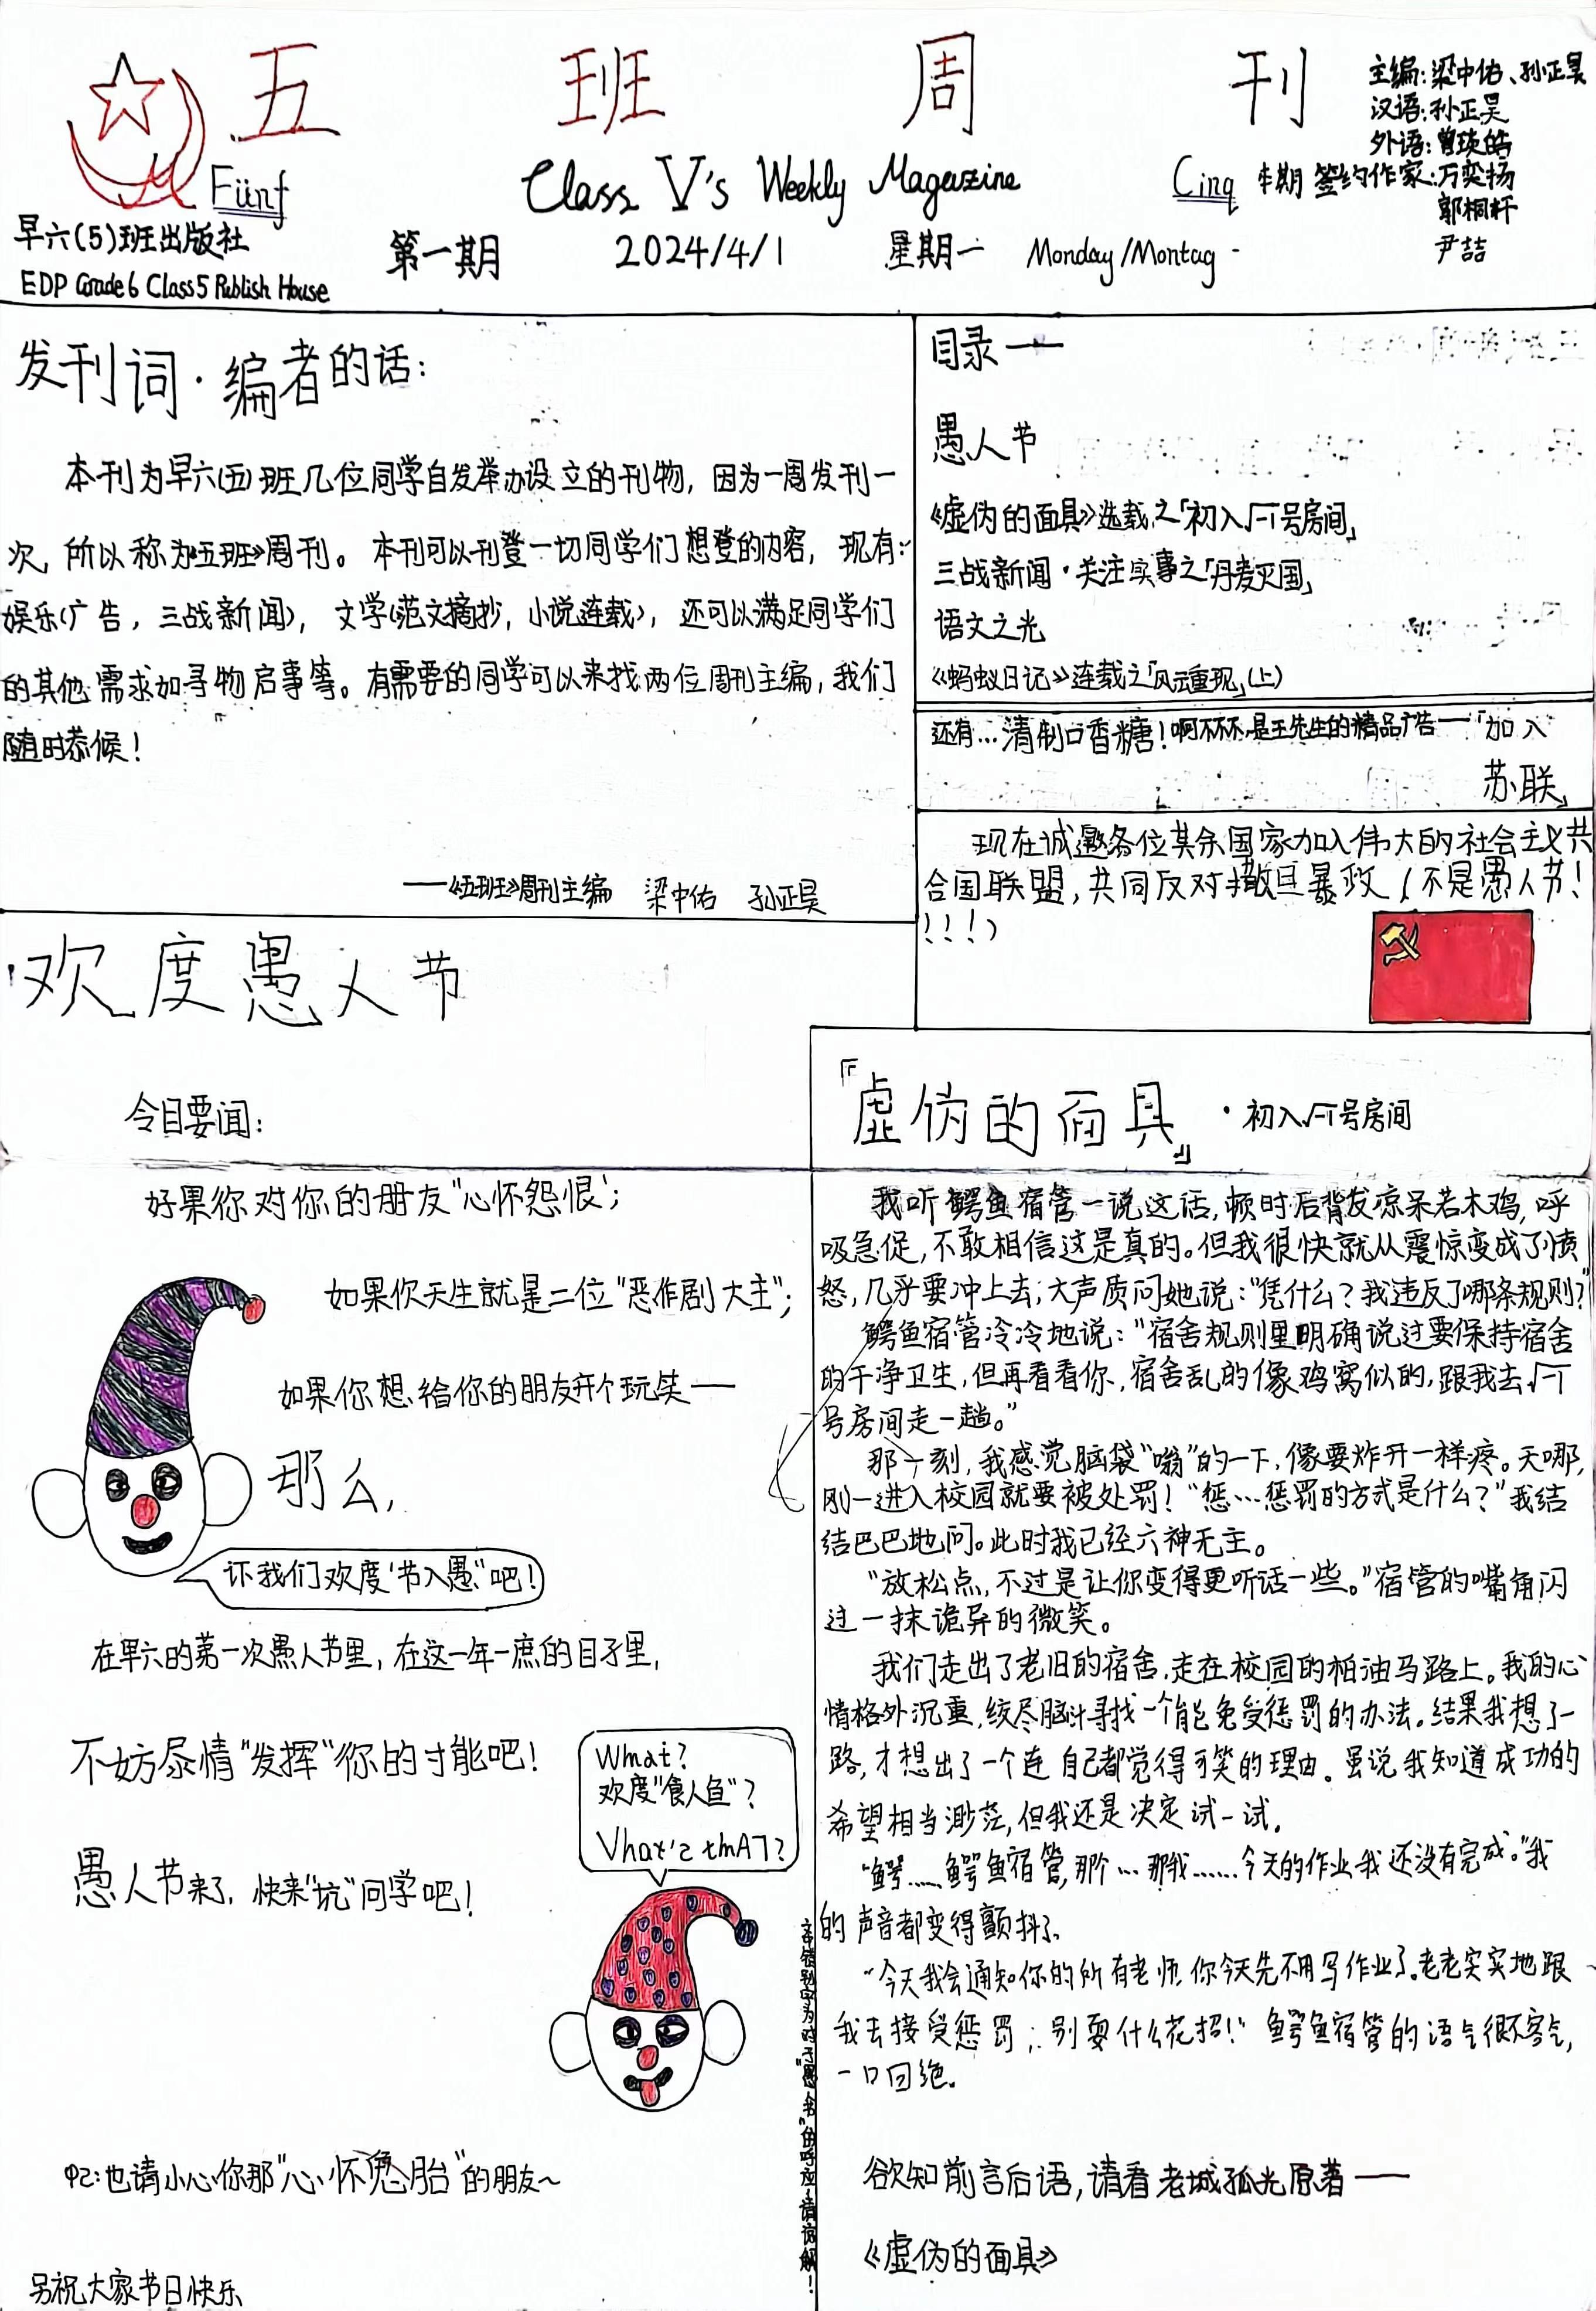 五班周刊
Fünf
Class V's Weekly Magazine
Cinq
主编:梁中佑、孙正昊
汉语:孙正昊
外语:曾琰皓
本期签约作家:万奕扬
郭桐轩
尹喆
早六(5)班出版社
EDP Grade6 Class5 Publish House
第一期 2024/4/1 星期一 Monday/Montag
发刊词·编者的话:
本刊为早六(五)班几位同学自发举办设立的刊物,因为一周发刊一
次,所以称为《五班》周刊。本刊可以刊登一切同学们想登的内容,现有:
娱乐(广告,三战新闻),文学(范文摘抄,小说连载),还可以满足同学们
的其他需求如寻物启事等。有需要的同学可以来找两位周刊主编,我们
随时恭候!
——《五班》周刊主编 梁中佑 孙正昊
目录——
愚人节
《虚伪的面具》选载之「初入√-1号房间」
三战新闻·关注实事之「丹麦灭国」
语文之光
《蚂蚁日记》连载之「风云重现」(上)
还有…清制口香糖!啊不不不,是王先生的精品广告——「加入
苏联」
现在诚邀各位其余国家加入伟大的社会主义共
合国联盟,共同反对撒旦暴政(不是愚人节!
!!!)
欢度愚人节
今日要闻:
好果你对你的朋友"心怀怨恨";
如果你天生就是二位"恶作剧大主";
如果你想给你的朋友开个玩笑——
那么,
让我们欢度"节入愚"吧!
在早六的第一次愚人节里,在这一年一庶的日子里,
不妨尽情"发挥"你的寸能吧!
愚人节来了,快来"坑"同学吧!
What?
欢度"食人鱼"?
Vhat's thAT?
本错别字为对于"愚人节"的呼应,请谅解!
PS:也请小心你那"心怀鬼胎"的朋友~
另祝大家节日快乐
『虚伪的面具』·初入√-1号房间
我听鳄鱼宿管一说这话,顿时后背发凉呆若木鸡,呼
吸急促,不敢相信这是真的。但我很快就从震惊变成了愤
怒,几乎要冲上去,大声质问她说:"凭什么?我违反了哪条规则?"
鳄鱼宿管冷冷地说:"宿舍规则里明确说过要保持宿舍
的干净卫生,但再看看你,宿舍乱的像鸡窝似的,跟我去√-1
号房间走一趟。"
那一刻,我感觉脑袋"嗡"的一下,像要炸开一样疼。天哪,
刚一进入校园就要被处罚!"惩…惩罚的方式是什么?"我结
结巴巴地问。此时我已经六神无主。
"放松点,不过是让你变得更听话一些。"宿管的嘴角闪
过一抹诡异的微笑。
我们走出了老旧的宿舍,走在校园的柏油马路上。我的心
情格外沉重,绞尽脑汁寻找一个能免受惩罚的办法。结果我想了一
路,才想出了一个连自己都觉得可笑的理由。虽说我知道成功的
希望相当渺茫,但我还是决定试一试。
"鳄……鳄鱼宿管,那个…那我……今天的作业我还没有完成。"我
的声音都变得颤抖了。
"今天我会通知你的所有老师,你今天先不用写作业了。老老实实地跟
我去接受惩罚,别耍什么花招!"鳄鱼宿管的语气很不客气,
一口回绝。
欲知前言后语,请看老城孤光原著——
《虚伪的面具》